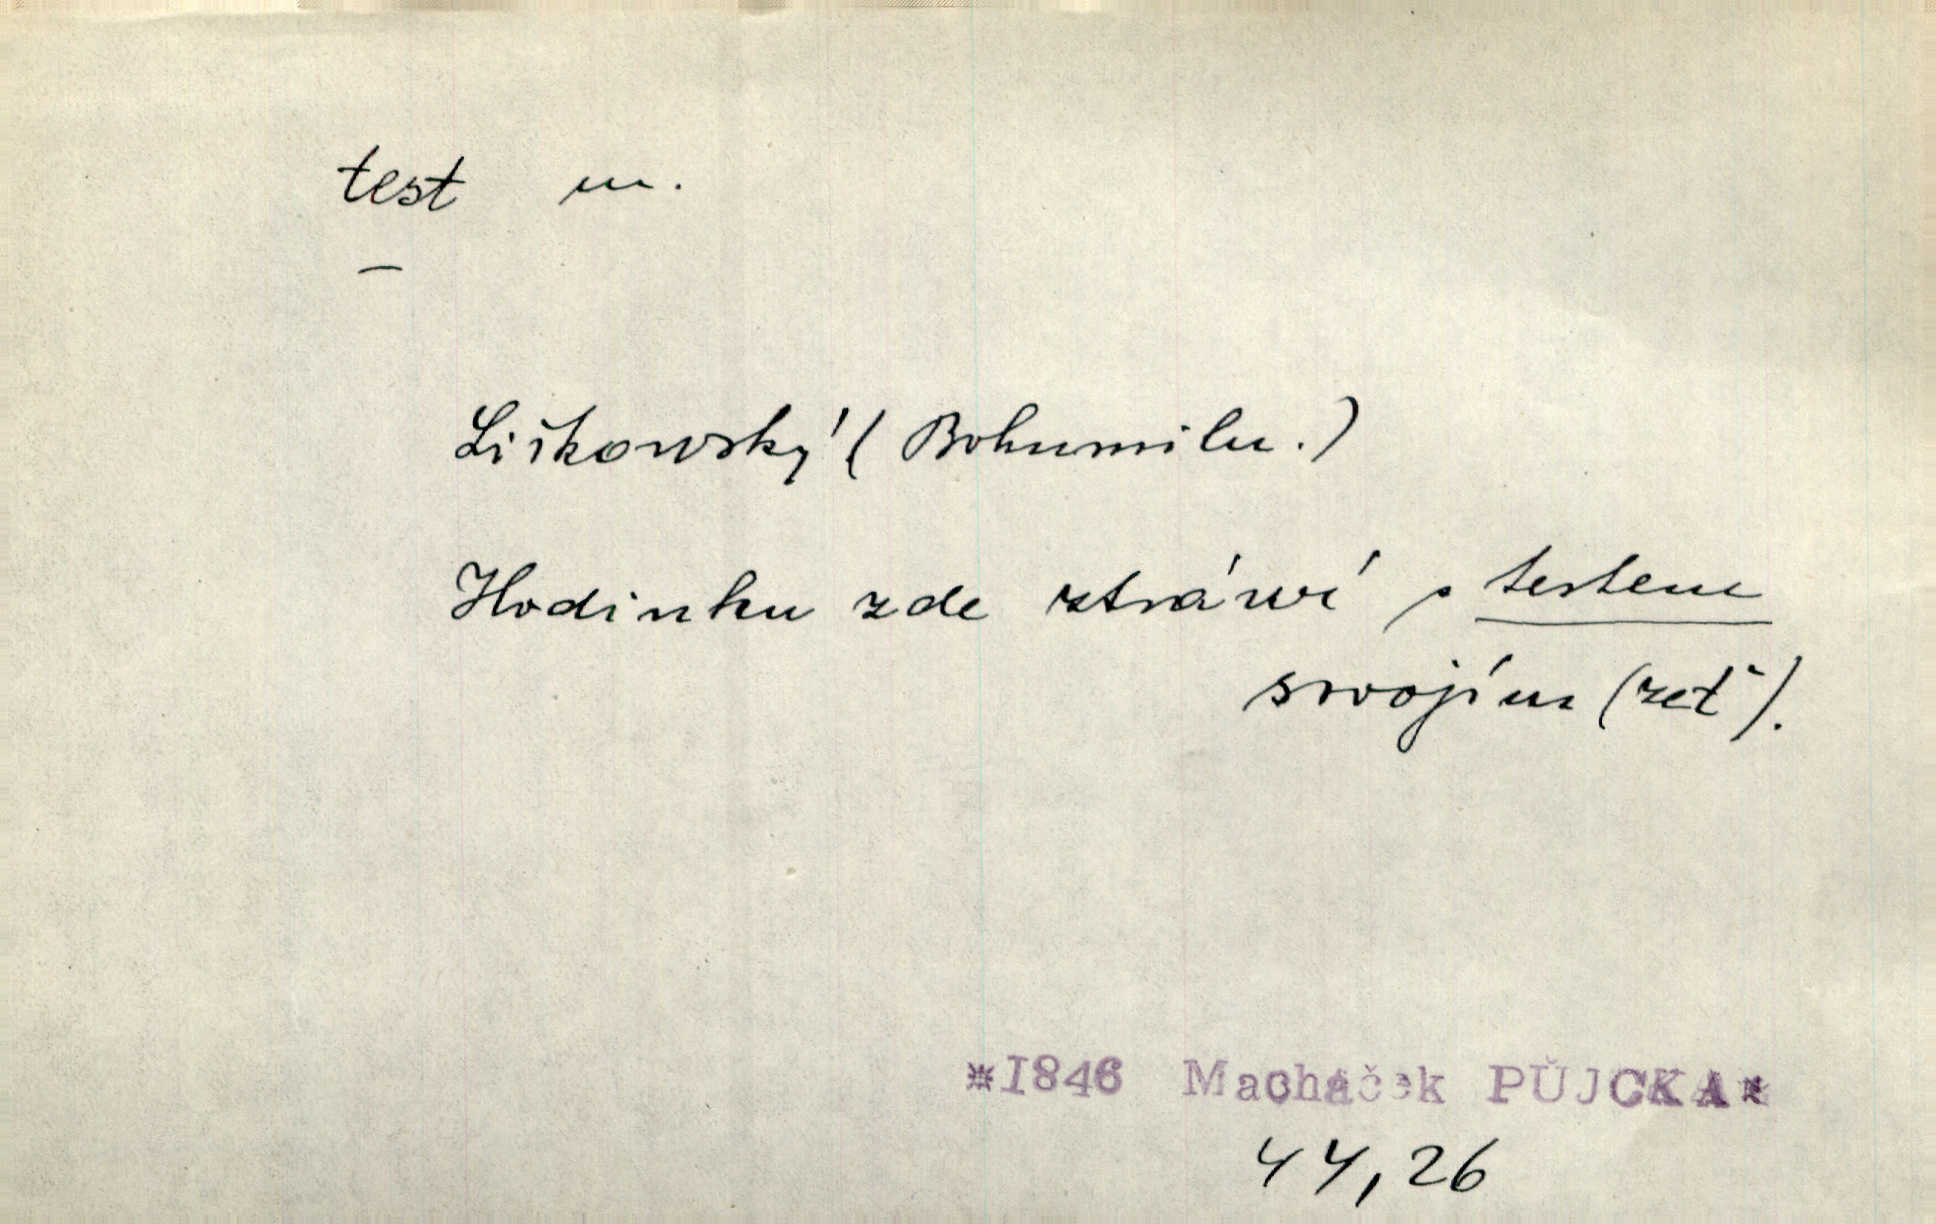 test m.
–
Liškowský (Bohumilu.)
Hodinku zde ztráwí s testem
swojím (zeť).
*1846 Macháček PŮJCKA*
44,26